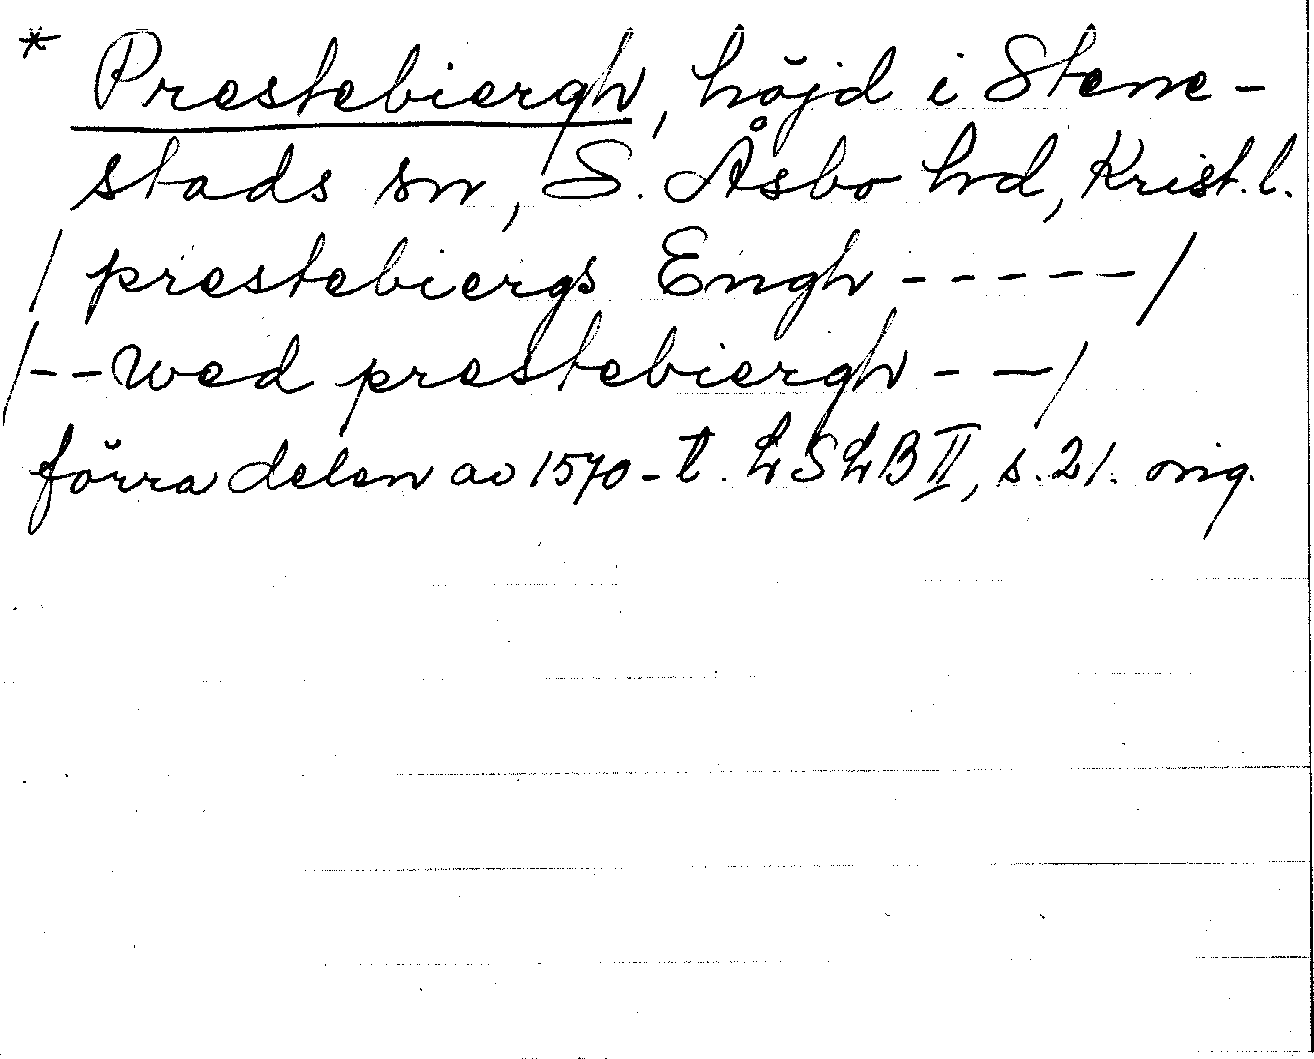 * Prestebiergh, höjd i Stene-
stads sn, S. Åsbo hd, Krist. l.
/ prestebiergs Engh - - - - - /
/ - - wed prestebiergh - - /
förra delen av 1570-t. LSLB II, s. 21. orig.